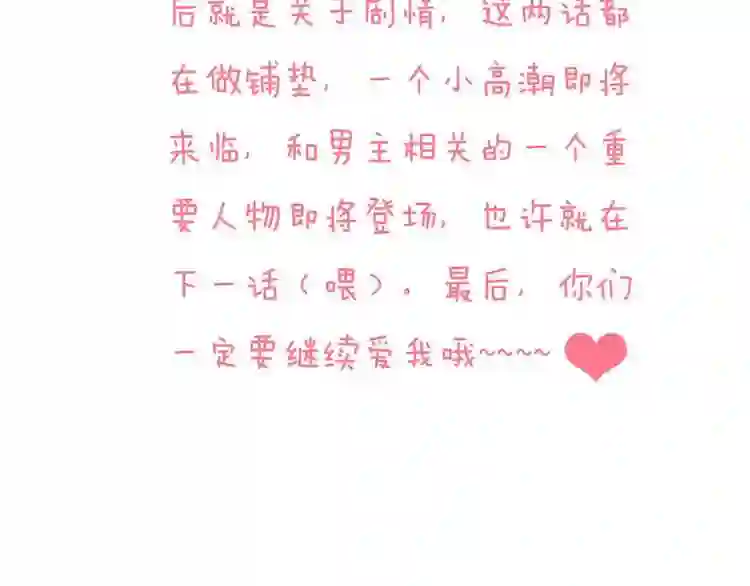 后就是关于剧情，这两话都
在做铺垫，一个小高潮即将
来临，和男主相关的一个重
要人物即将登场，也许就在
下一话（喂）。最后，你们
一定要继续爱我哦~~~~